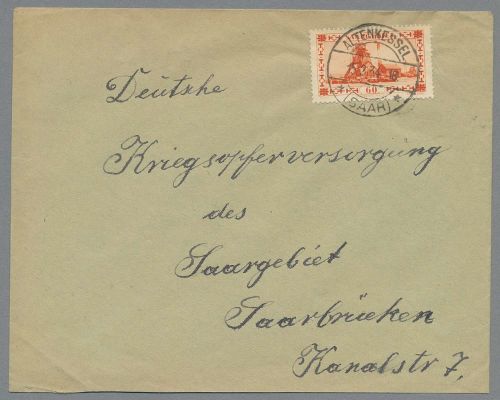 ALTENKESSEL
(SAAR)
60
Deutsche
Kriegsopferversorgung
des
Saargebiet
Saarbrücken
Kanalstr 7,